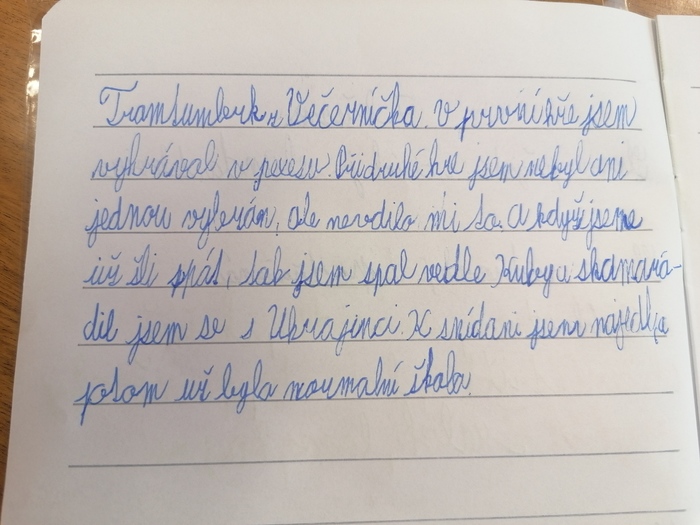 Tramtumberk z Večerníčka. V první hře jsem
vyhrával v pexesu. Při druhé hře jsem nebyl ani
jednou vybrán, ale nevadilo mi to. A když jsme
už šli spát, tak jsem spal vedle Kuby a skamará-
dil jsem se s Ukrajinci. K snídani jsem najedl a
potom už byla normalní škola.